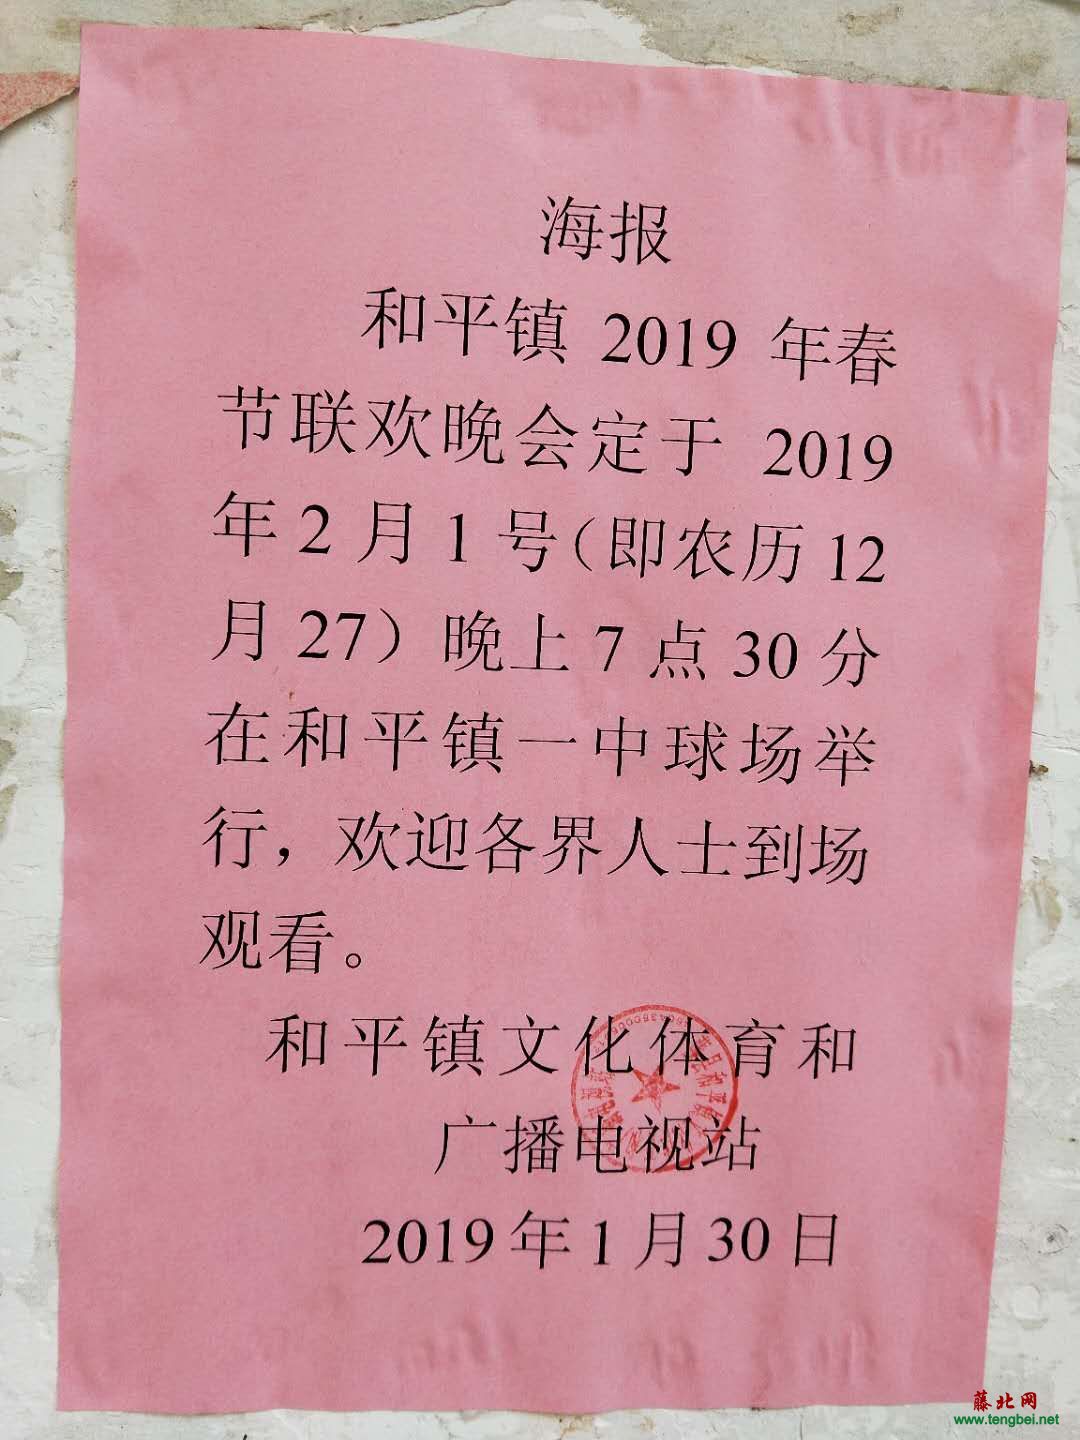 海报
和平镇 2019 年春
节联欢晚会定于 2019
年 2 月 1 号（即农历 12
月 27）晚上 7 点 30 分
在和平镇一中球场举
行，欢迎各界人士到场
观看。
和平镇文化体育和
广播电视站
2019 年 1 月 30 日
藤北网
www.tengbei.net